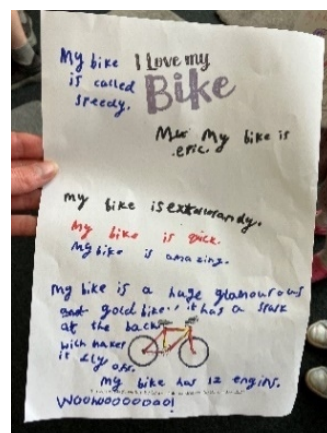 My bike
is called
speedy.
I Love my
Bike
My bike is
epic.
my bike is
my bike is
My bike is amazing.
my bike is a huge glamourous
gold bike it has a
at the back
it fly off.
my bike has 12 engins.
Woohooooooo!